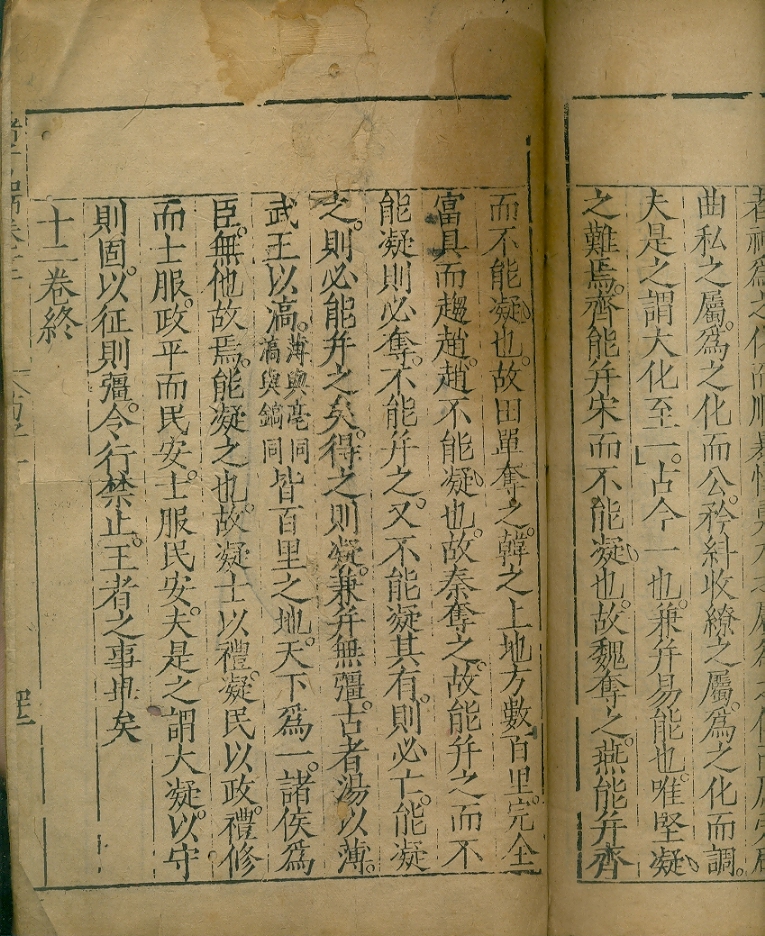 曲私之屬。爲之化而公。矜糾收繚之屬。爲之化而調。
夫是之謂大化至一。古今一也。兼并易能也。唯堅凝
之難焉。齊能并宋而不能凝也。故魏奪之。燕能并齊
而不能凝也。故田單奪之。韓之上地方數百里。完全
富具而趨趙。趙不能凝也。故秦奪之。故能并之而不
能凝則必奪。不能并之。又不能凝其有。則必亡。能凝
之。則必能并之矣。得之則凝。兼并無彊。古者湯以薄。
武王以滈。薄與亳同滈與鎬同皆百里之地。天下爲一。諸侯爲
臣。無他故焉。能凝之也。故凝士以禮。凝民以政。禮修
而士服。政平而民安。士服民安。夫是之謂大凝。以守
則固。以征則彊。令行禁止。王者之事畢矣
十二卷終